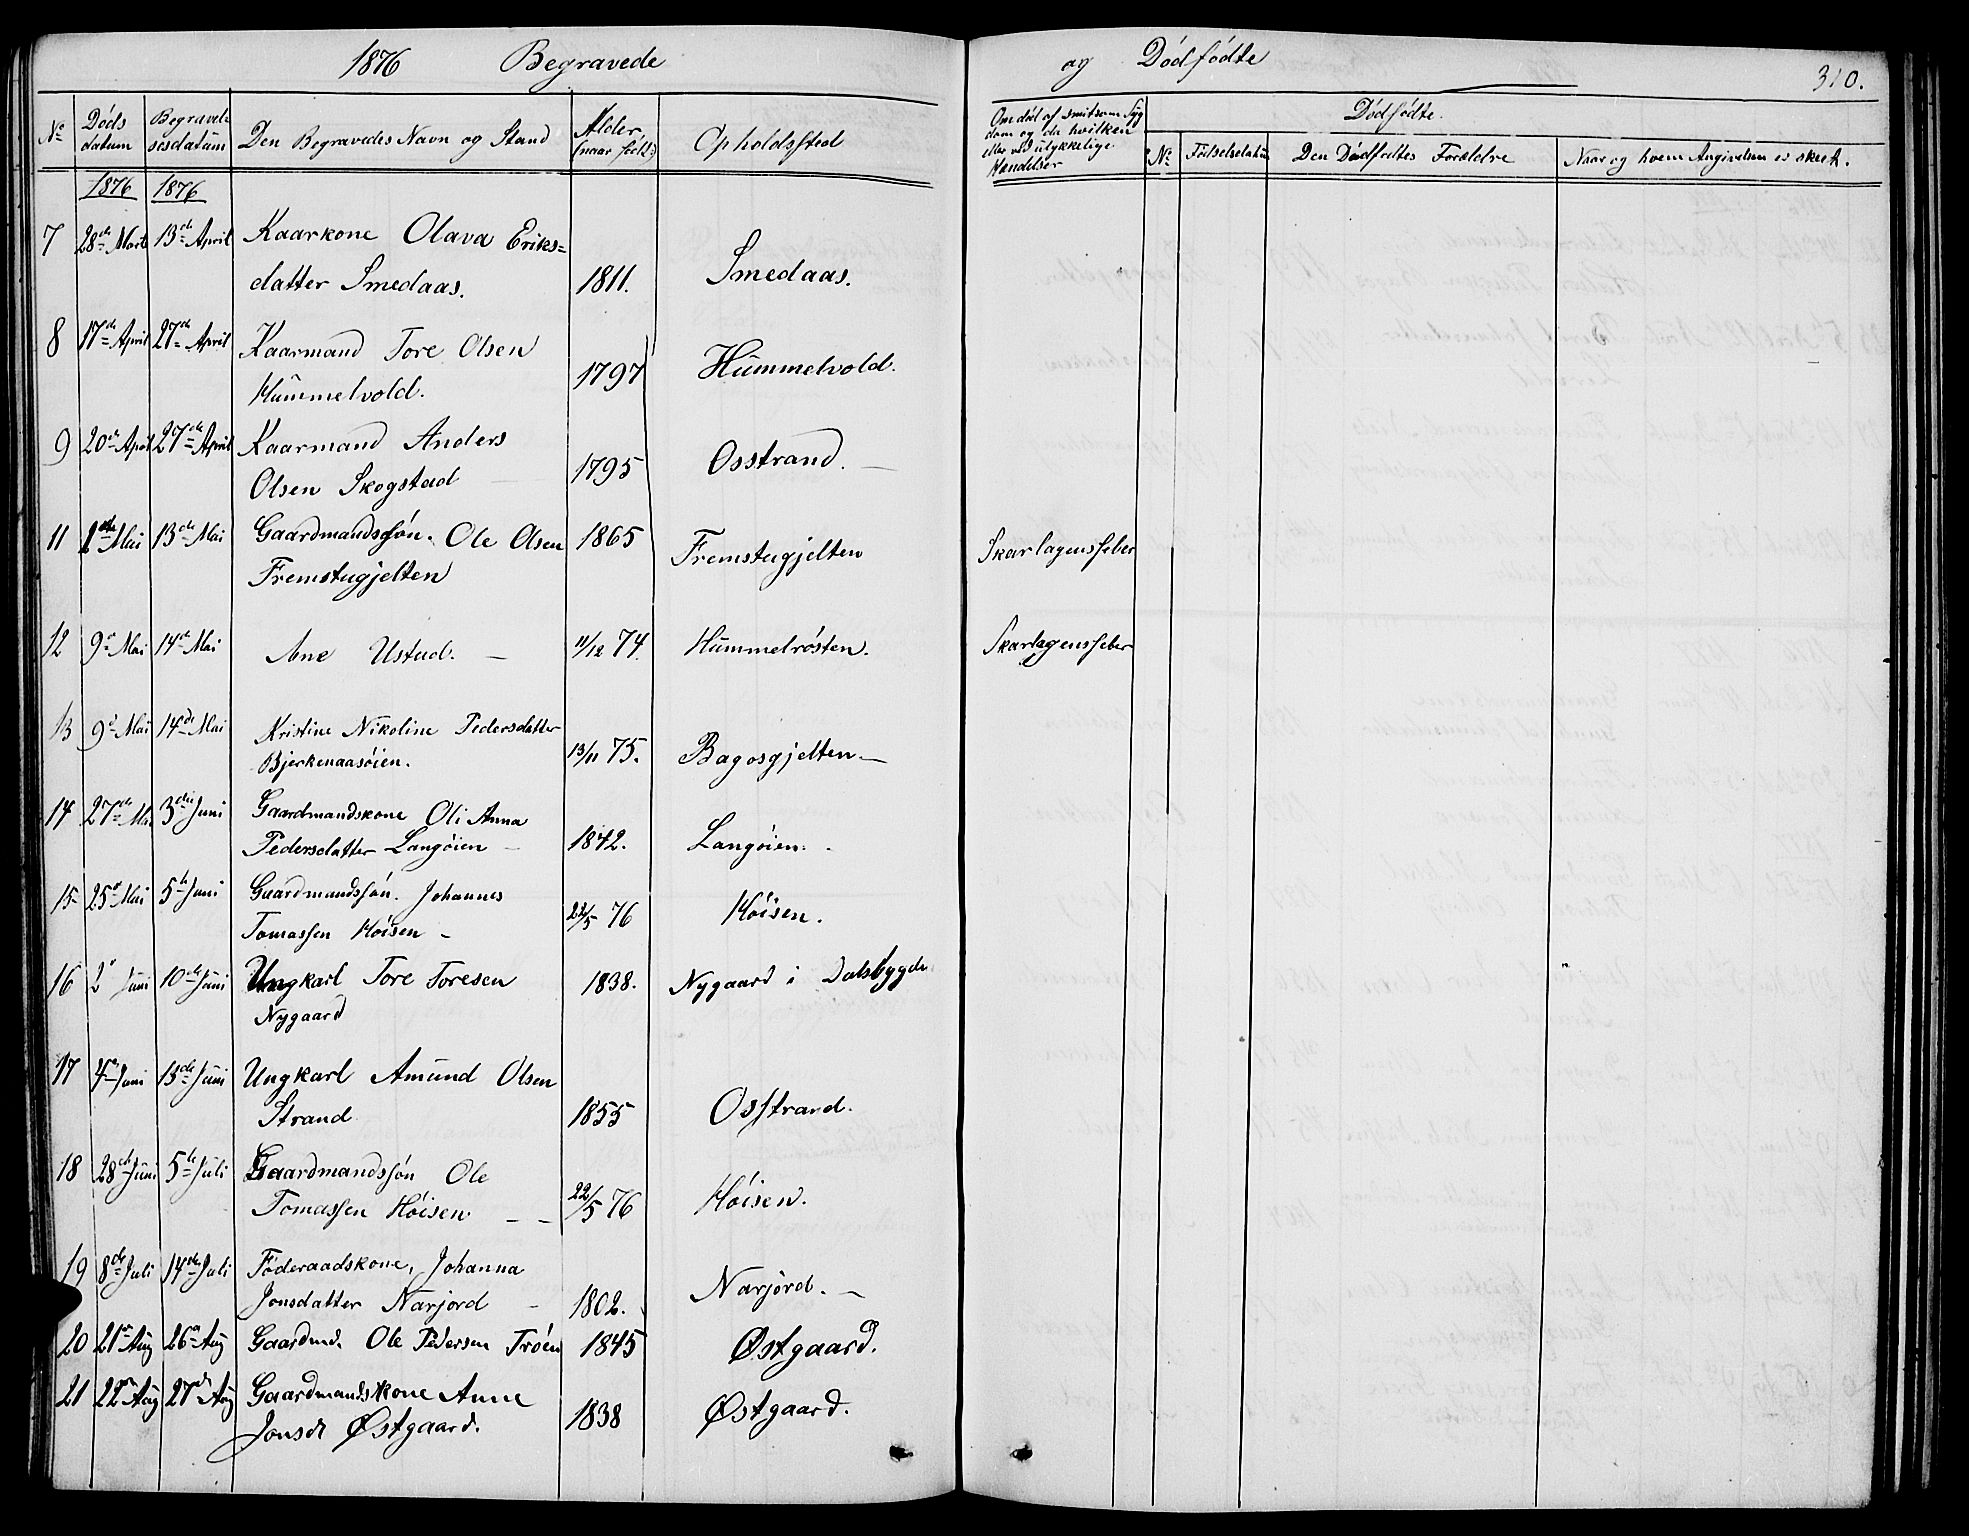 1876 Begravede og Dödfödte 310.
No Döds datum Begravelsesdatum Den Begravedes Navn og Stand Alder, (naar födt:) Opholdssted Om död af smitsom Sygdom og da hvilken eller ved ulykkelige Hændelser
Dødfødte.
No Födselsdatum Den Dödfödtes Forældre Naar og hvem Angivelsen er skeet.
1876 1876
7 28de Marts 13de April Kaarkone Olava Eriks=
datter Smedaas. 1811. Smedaas.
8 17de April 27de April Kaarmand Tore Olsen
Hummelvold. 1797 Hummelvold.
9 20de April 27de April Kaarmand Anders
Olsen Skogstad 1795 Osstrand.
11 Mai 13de Mai Gaardmandssön. Ole Olsen 1865 Fremstugjelten Skarlagensfeber
Fremstugjelten
12 9de Mai 14de Mai Ane Ustad. 11/12 74. Hummelrösten. Skarlagensfeber
13 9de Mai 14de Mai Kristine Nikoline Pedersdatter
Bjerkenaasöien. 13/11 75. Bagosgjelten
14 27de Mai 3die Juni Gaardmandskone Oli Anna
Pedersdatter Langöien 1842. Langöien.
15 25de Mai 5te Juni Gaardmandssön. Johannes
Tomassen Höisen 22/5 76 Höisen.
16 2den Juni 10de Juni Ungkarl Tore Toresen 1838. Nygaard i Dalsbygda
Nygaard
17 4de Juni 13de Juni Ungkarl Amund Olsen
Strand 1855 Osstrand.
18 28de Juni 5te Juli Gaardmandssön Ole
Tomassen Höisen 22/5 76 Höisen.
19 8de Juli 14de Juli Föderaadskone, Johanna
Jonsdatter Narjord 1802. Narjord.
20 21de Aug 26de Aug Gaardmd. Ole Pedersen Tröen 1845 Østgaard.
21 22de Aug 27de Aug Gaardmandskone Anne
Jonsdt Østgaard. 1838 Østgaard.